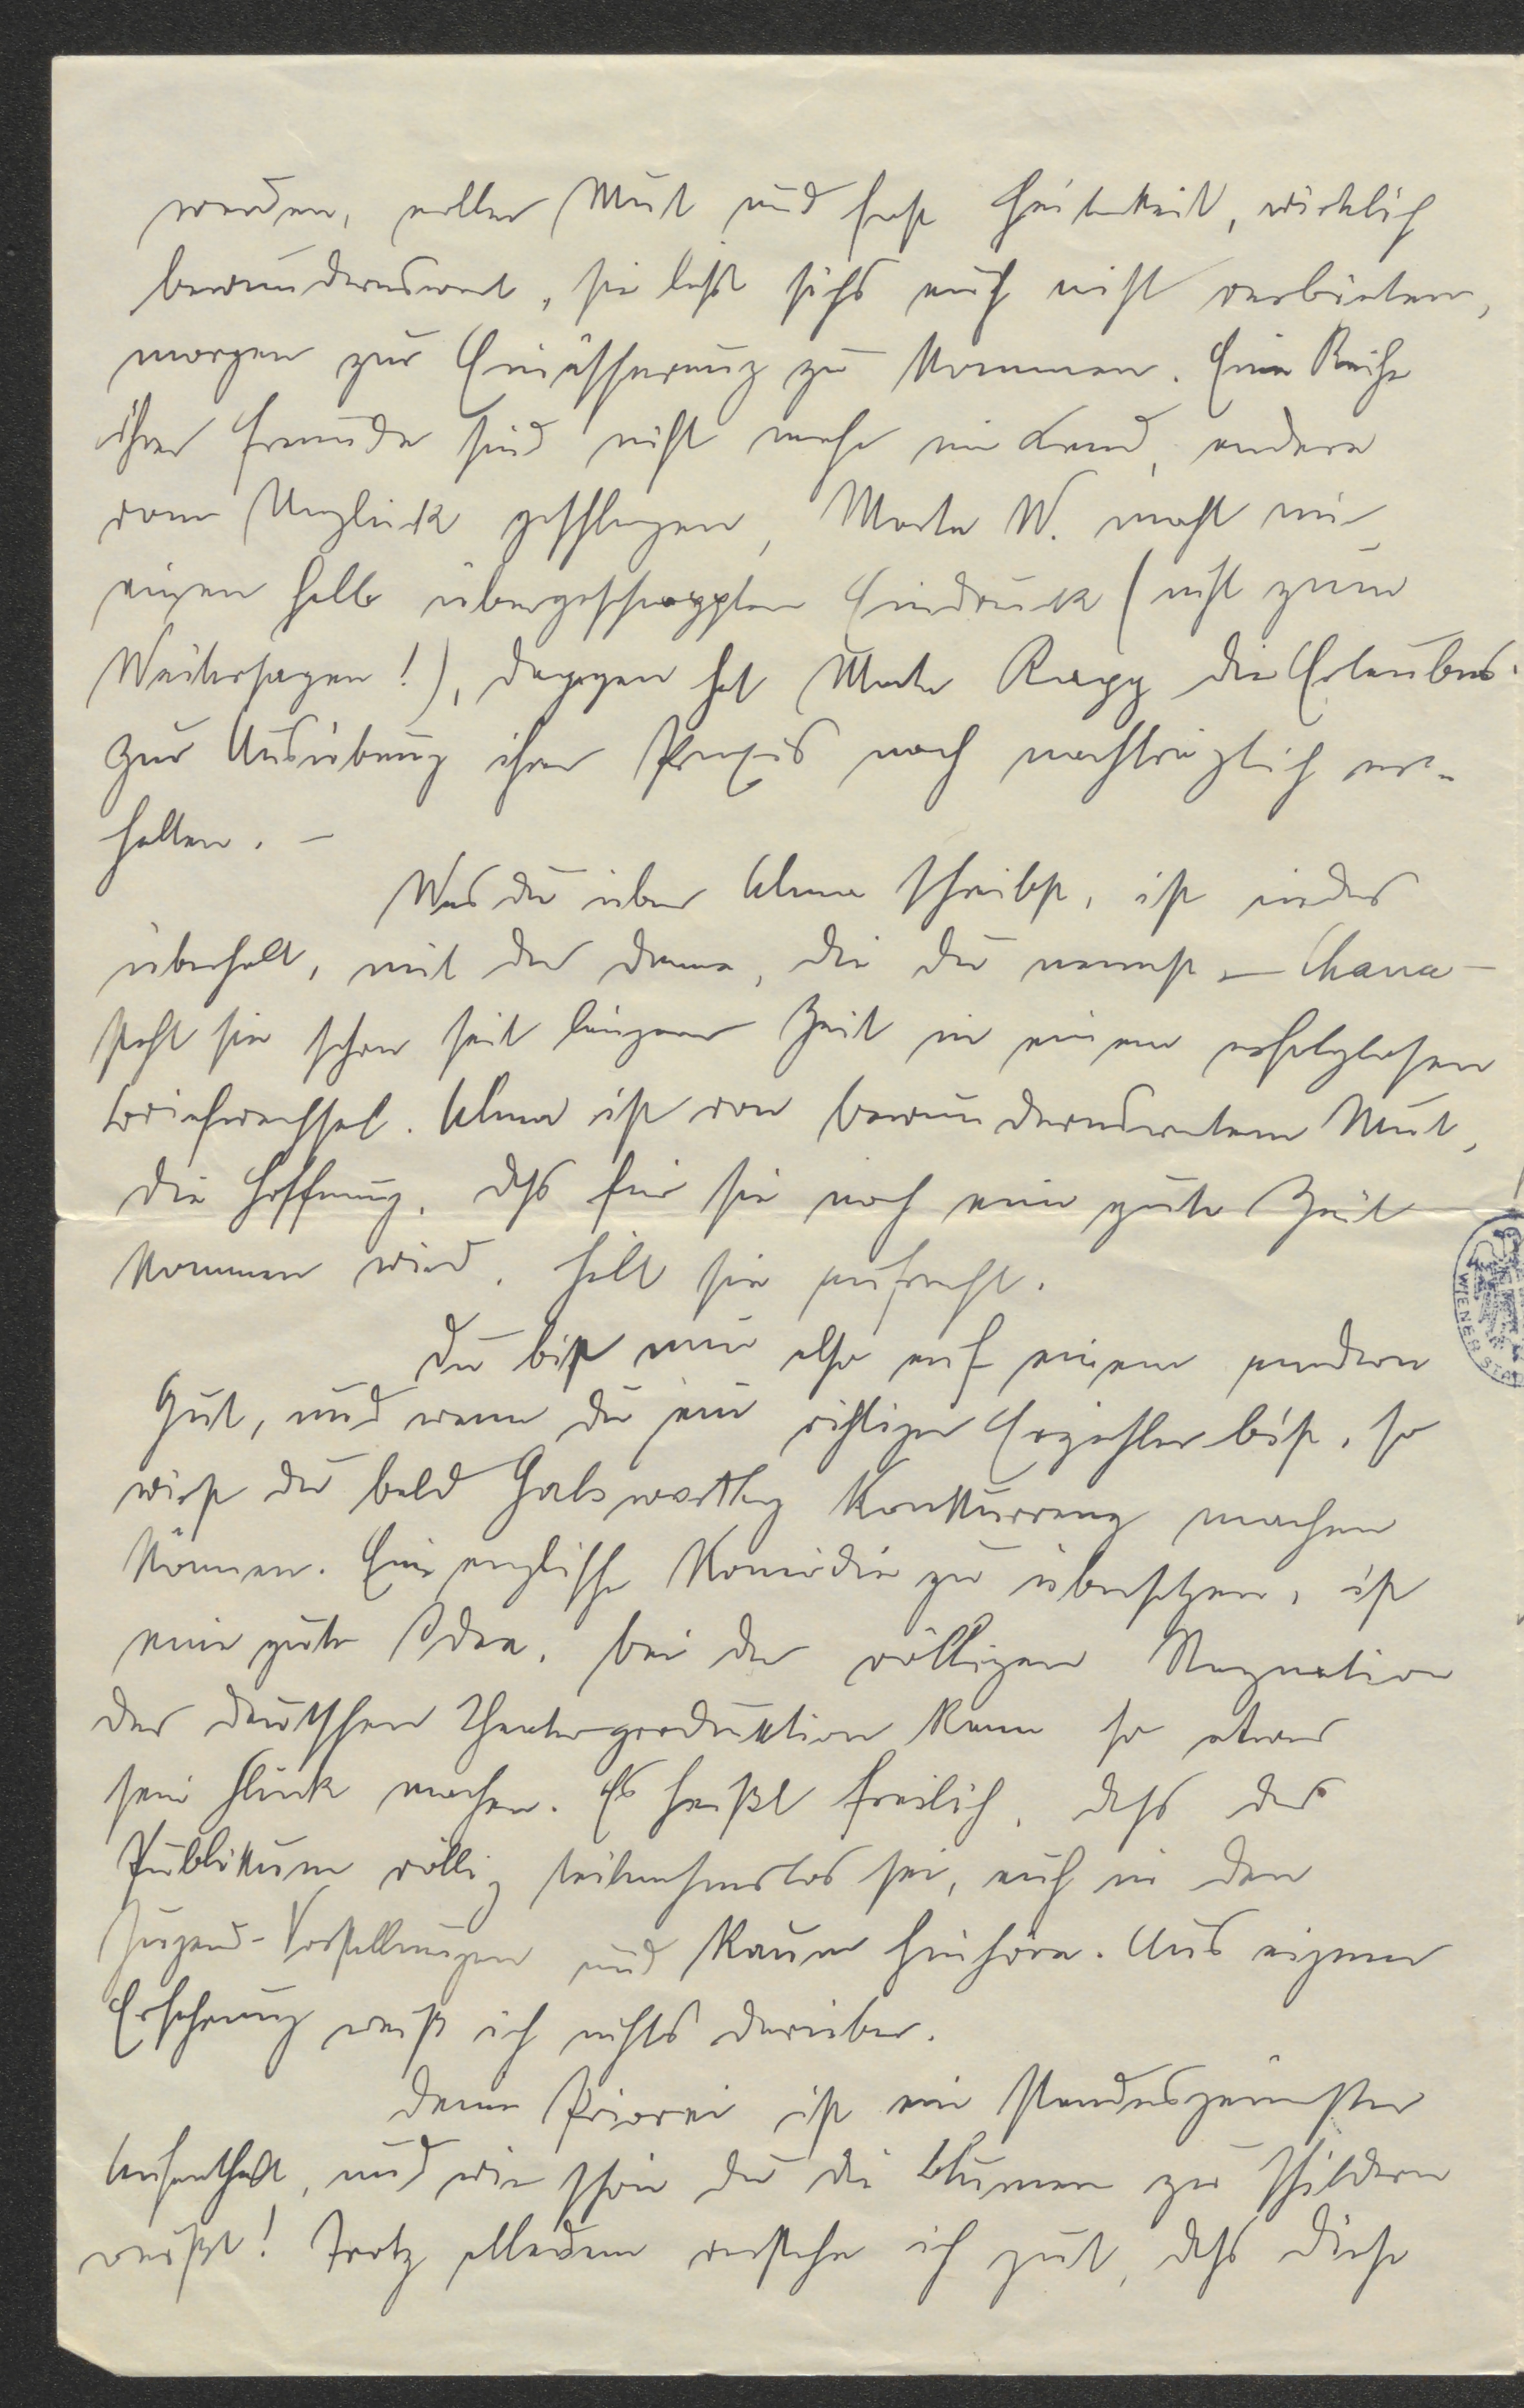 werden, voller Mut und fast Heiterkeit, wirklich
bewundernswert, sie lässt sichs auch nicht verbieten,
morgen zur Einäscherung zu kommen. Eine Reihe
ihrer Freunde sind nicht mehr im Land, andere
vom Unglück geschlagen, Marta W. macht mir
einen halb übergeschnappten Eindruck (nicht zum
Weitersagen!), dagegen hat Marta Rapp die Erlaubnis
zur Ausübung ihrer Praxis noch nachträglich er-
halten. –
Was du über Alma schreibst, ist
überholt, mit der Dame, die du nennst – Chana –
steht sie schon seit längerer Zeit in einem erfolglosen
Briefwechsel. Alma ist von bewundernswertem Mut,
die Hoffnung, dass für sie noch eine gute Zeit
kommen wird, hält sie aufrecht.
Du bist nun also auf einem andern
Gut, und wenn du ein richtiger Erzähler bist, so
wirst du bald Galsworthy Konkurrenz machen
können. Eine englische Komödie zu übersetzen, ist
eine gute Idee, bei der völligen Stagnation
der deutschen Theaterproduktion kann so etwas
sein Glück machen. Es heißt freilich, dass das
Publikum völlig teilnahmslos sei, auch in den
Jugend-Vorstellungen und kaum hinhöre. Aus eigener
Erfahrung weiß ich nichts darüber.
Deine Priorei ist ein standesgemäßer
Aufenthalt, und wie schön du die Blumen zu schildern
weißt! Trotz alledem verstehe ich gut, dass diese
WIENER STA